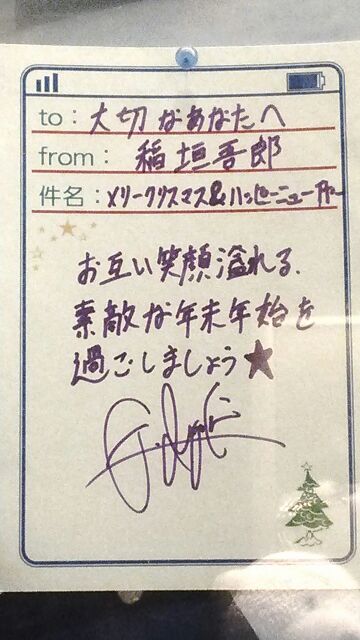 to：大切なあなたへ
from：稲垣吾郎
件名：メリークリスマス&ハッピーニューイヤー
お互い笑顔溢れる、
素敵な年末年始を
過ごしましょう★